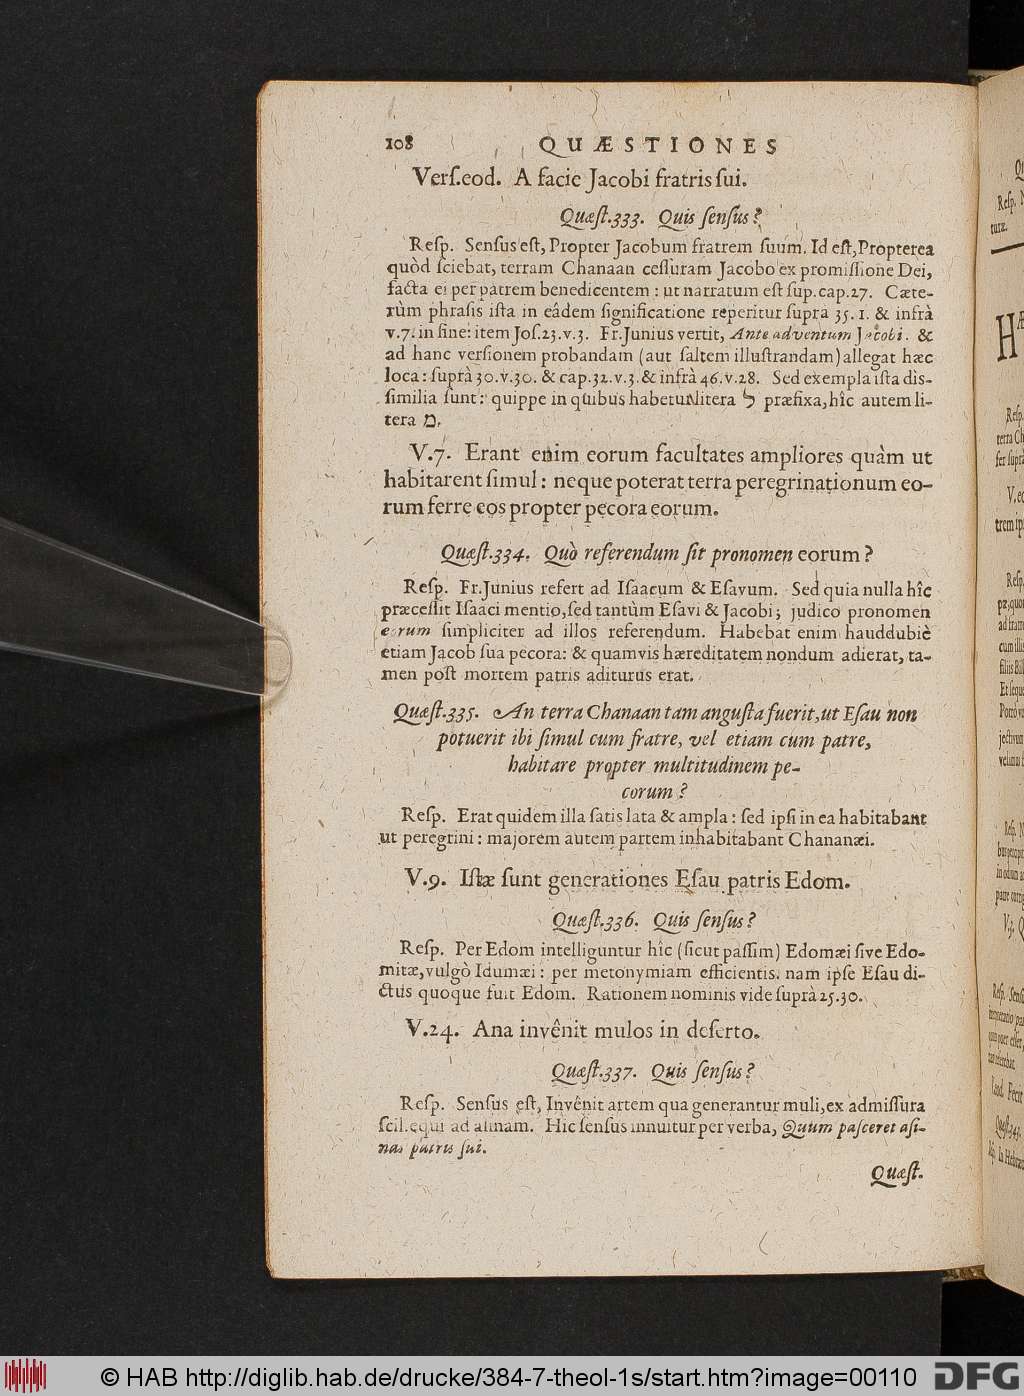 108 QUÆSTIONES
Verſ.eod. A facie Jacobi fratris ſui.
Quæſt.333. Quis ſenſus?
Reſp. Senſus eſt, Propter Jacobum fratrem ſuum. Id eſt, Propterea
quòd ſciebat, terram Chanaan ceſſuram Jacobo ex promiſſione Dei,
facta ei per patrem benedicentem: ut narratum eſt ſup. cap. 27. Cæte-
rùm phraſis iſta in eâdem ſignificatione reperitur ſuprà 35. 1. & infrà
v.7. in fine: item Joſ.23.v.3. Fr. Junius vertit, Ante adventum Jacobi. &
ad hanc verſionem probandam (aut ſaltem illuſtrandam) allegat hæc
loca: ſuprà 30.v.30. & cap.32.v.3. & infrà 46.v.28. Sed exempla iſta diſ-
ſimilia ſunt: quippe in quibus habetur litera ל præfixa, hîc autem li-
tera מ.
V.7. Erant enim eorum facultates ampliores quàm ut
habitarent ſimul: neque poterat terra peregrinationum eo-
rum ferre eos propter pecora eorum.
Quæſt.334. Quò referendum ſit pronomen eorum?
Reſp. Fr. Junius refert ad Iſaacum & Eſavum. Sed quia nulla hîc
præceſſit Iſaaci mentio, ſed tantùm Eſavi & Jacobi; judico pronomen
eorum ſimpliciter ad illos referendum. Habebat enim hauddubiè
etiam Jacob ſua pecora: & quamvis hæreditatem nondum adierat, ta-
men poſt mortem patris aditurus erat.
Quæſt.335. An terra Chanaan tam anguſta fuerit, ut Eſau non
potuerit ibi ſimul cum fratre, vel etiam cum patre,
habitare propter multitudinem pe-
corum?
Reſp. Erat quidem illa ſatis lata & ampla: ſed ipſi in ea habitabant
ut peregrini: majorem autem partem inhabitabant Chananæi.
V.9. Iſtæ ſunt generationes Eſau patris Edom.
Quæſt.336. Quis ſenſus?
Reſp. Per Edom intelliguntur hîc (ſicut paſſim) Edomæi ſive Edo-
mitæ, vulgò Idumæi: per metonymiam efficientis. nam ipſe Eſau di-
ctus quoque fuit Edom. Rationem nominis vide ſuprà 25.30.
V.24. Ana invênit mulos in deſerto.
Quæſt.337. Quis ſenſus?
Reſp. Senſus eſt, Invênit artem qua generantur muli, ex admiſſura
ſcil. equi ad aſinam. Hic ſenſus innuitur per verba, Quum paſceret aſi-
nas patris ſui.
Quæſt.
© HAB http://diglib.hab.de/drucke/384-7-theol-1s/start.htm?image=00110 DFG